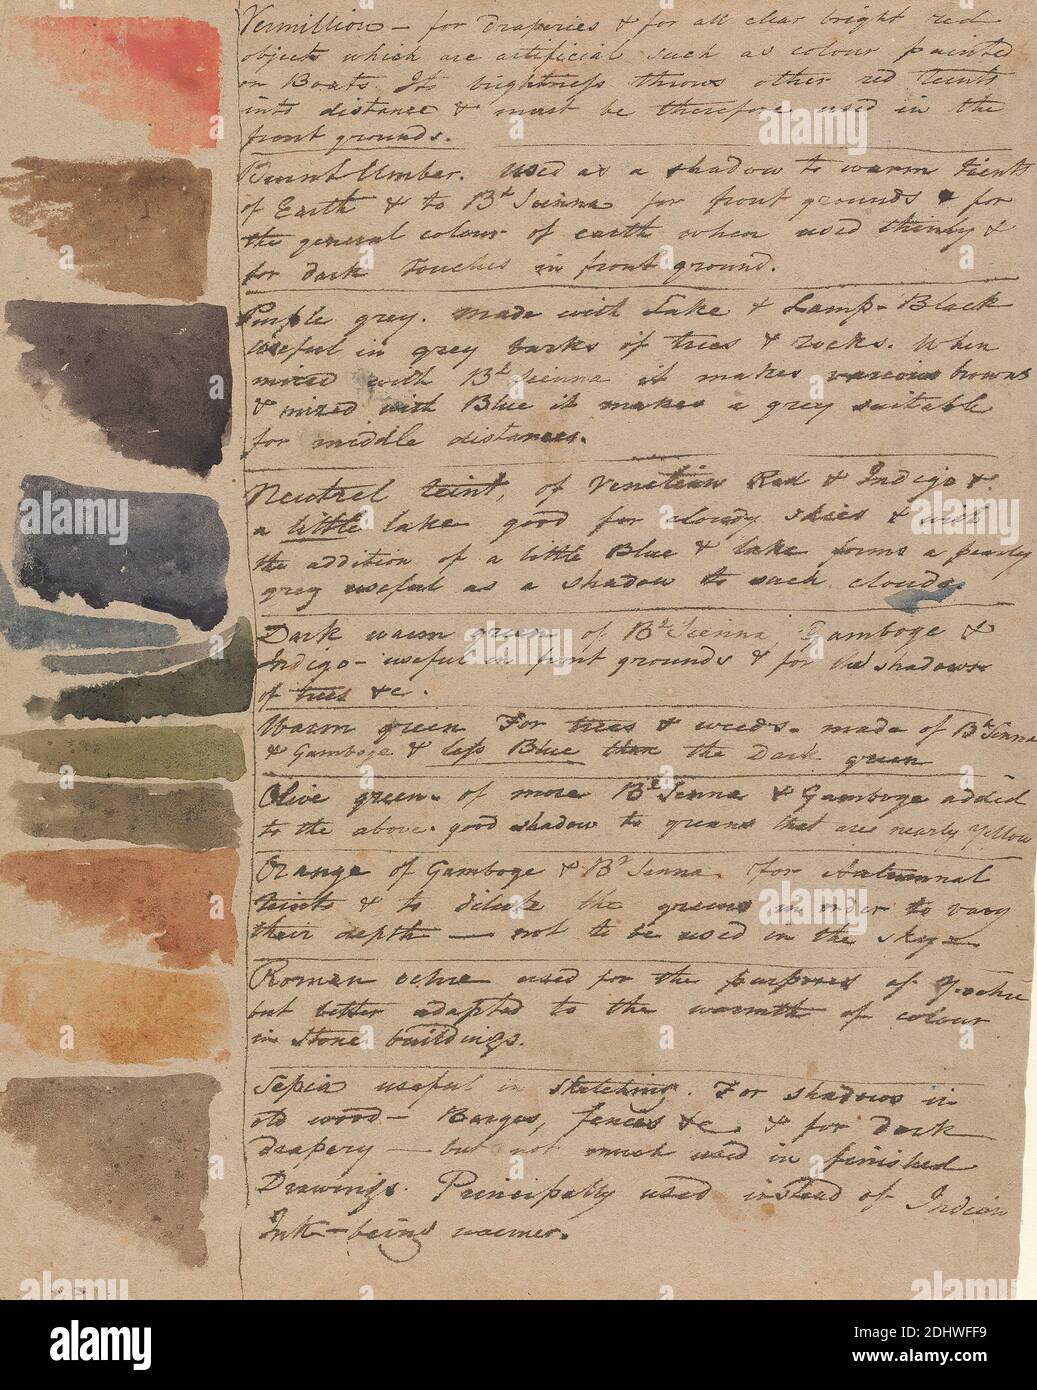 Vermillion – for Draperies & for all clear bright red
objects which are artificial such as colour painted
on Boats. Its brightness throws other red teints
into distance & must be therefore used in the
front grounds.
Burnt Umber. used as a shadow to warm teints
of Earth & to Bt Seinna for front grounds & for
the general colour of earth when used thinly &
for dark touches in front ground.
Purple grey. made with Lake & Lamp-Black
useful in grey barks of trees & rocks. When
mixed with Bt Seinna it makes various browns
& mixed with Blue it makes a grey suitable
for middle distances.
Neutrel teint, of Venetian Red & Indigo &
a little lake good for cloudy skies & with
the addition of a little Blue & lake forms a pearly
grey useful as a shadow to such clouds.
Dark warm green of Bt Seinna, Gamboge &
Indigo – useful in front grounds & for the shadows
of trees &c.
Warm green For trees & weeds. made of Bt Sinna
& Gamboge & less Blue than the Dark green
Olive green. of more Bt Senna & Gamboge added
to the above. good shadow to greens that are nearly yellow
Orange of Gamboge & Bt Senna. for Autumnal
teints & to dilute the greens in order to vary
their depth – not to be used in the sky –
Roman ochre used for the purposes of Y. ochre
but better adapted to the warmth of colour
in Stone buildings.
Sepia useful in sketching. For shadows in
old wood – Barges, fences &c. & for dark
drapery – but not much used in finished
Drawings. Principally used instead of Indian
Ink – being warmer.
alamy
Image ID: 2DHWFF9
www.alamy.com